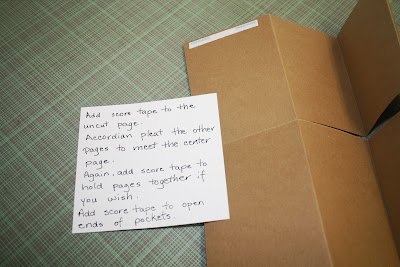 Add score tape to the
uncut page.
Accordian pleat the other
pages to meet the center
page.
Again, add score tape to
hold pages together if
you wish.
Add score tape to open
ends of pockets.